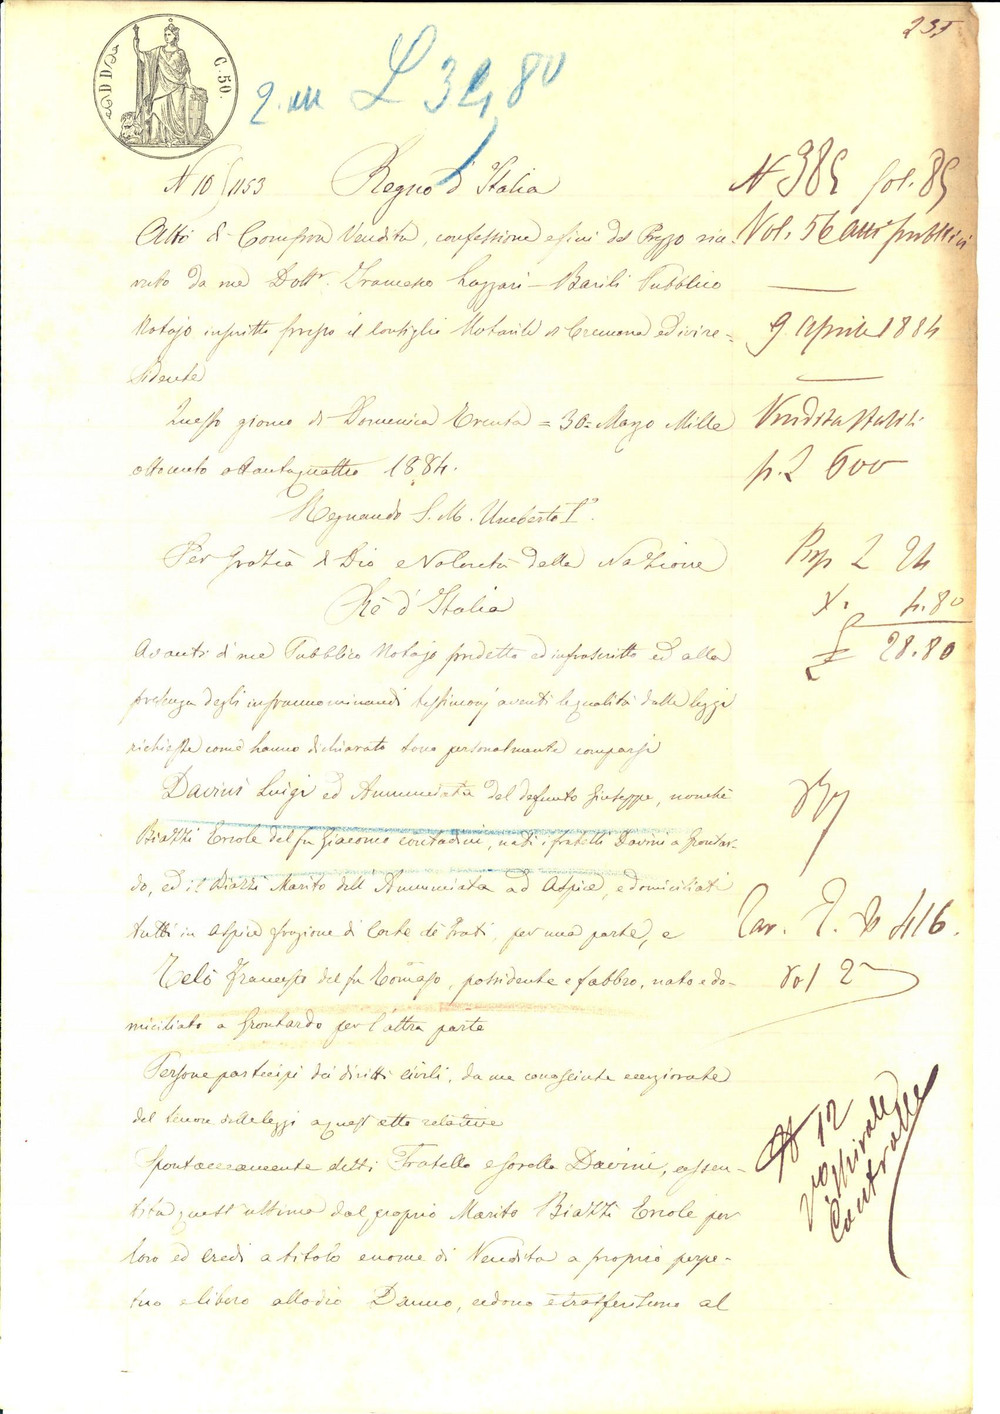 235
C. 50.
2. m L 34,80
N 10/1153 Regno d'Italia
N 385 fol. 85
Atto di Compra Vendita, confessione e fini del Prezzo rice-
Vol. 56 atti pubblici
vuto da me Dottr. Francesco Lazzari-Barili Pubblico
Notajo inscritto presso il Consiglio Notarile di Cremona ed ivi re=
9. Aprile 1884
sidente
Questo giorno di Domenica Trenta = 30 = Marzo Mille
Vendita stabili
ottocento ottantaquattro 1884.
p. L 600
Regnando S. M. Umberto I°.
Per grazia di Dio e Volontà della Nazione
Prop L 24
Rè d'Italia
X. 4.80
28.80
Avanti di me Pubblico Notajo predetto ed infrascritto ed alla
presenza degli infranominandi testimonj aventi le qualità dalle leggi
richieste come hanno dichiarato sono personalmente comparsi
Davini Luigi ed Annunciata del defunto Giuseppe, nonchè
Biazzi Ercole del fu Giacomo contadini, nati i fratelli Davini a Grontar-
do, ed il Biazzi Marito dell'Annunciata ad Aspice, e domiciliati
tutti in Aspice frazione di Corte de' Frati, per una parte, e
Tav. 416.
Telò Francesco del fu Tomaso, possidente e fabbro, nato e do-
vol 2
miciliato a Grontardo per l'altra parte
Persone partecipi dei diritti civili, da me conosciute e cerziorate
del tenore delle leggi a quest'atto relative
N 12
Spontaneamente detti Fratello e sorella Davini, assen-
tita quest'ultima dal proprio Marito Biazzi Ercole per
loro ed Eredi a titolo e nome di Vendita a proprio perpe-
tuo e libero allodio Danno, cedono e trasferiscono al